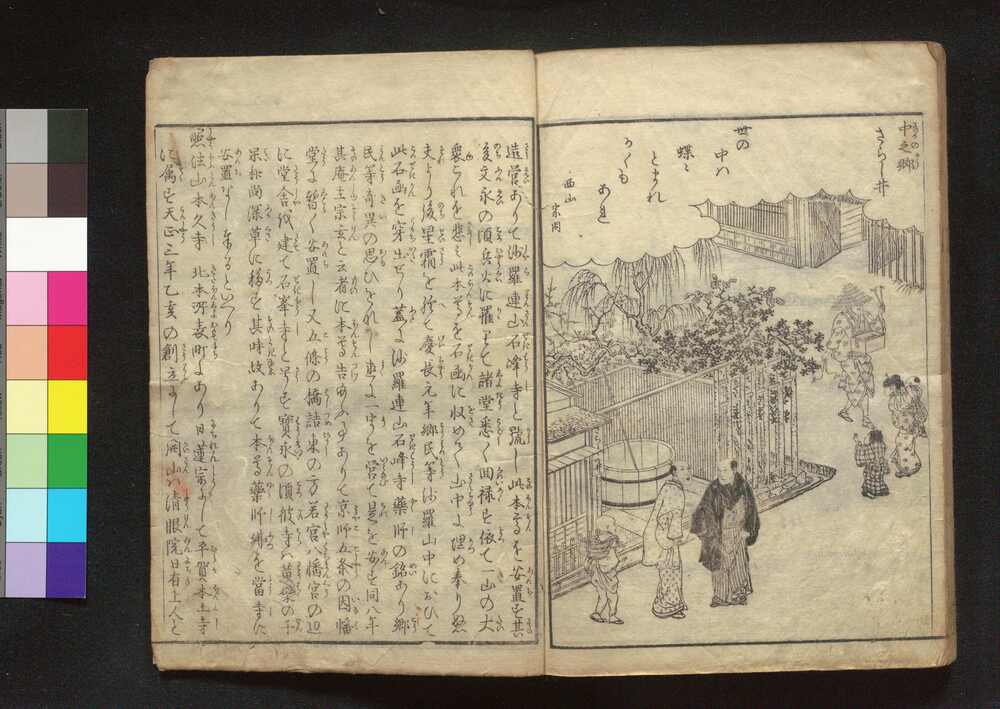 中之郷
さらし井
世の
中ハ
蝶〻
とまれ
かくも
あれ
西山
宗因
造営ありて沙羅連山石峰寺と號し此本尊を安置す其
後文永の頃兵火に罹りて諸堂悉く回禄す依て一山の大
衆これを悲ミ此本尊を石函に収めて山中に埋め奉り
夫より後星霜を経て慶長元年郷民等沙羅山中におひて
此石函を穿出せり蓋に沙羅連山石峰寺藥師の銘あり郷
民等奇異の思ひをなし一宇を営て是を安す同八年
其庵主宗玄と云者に本尊告ありて京師五条の因幡
堂に暫く安置し又五條の橋詰東の方若宮八幡宮の辺
に堂舎を建て石峯寺と号す寳永の頃彼寺ハ黄檗の千
呆和尚深草に移す其時故ありて本尊藥師佛を當寺に
安置なし奉るといへり
照法山本久寺 北本所表町にあり日蓮宗にして平賀本土寺
に属す天正三年乙亥の創立にして開山ハ清眼院日有上人と